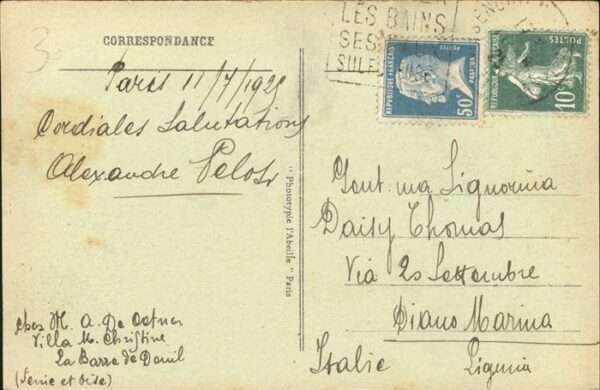 3
LES BAINS
SES
SULF
CORRESPONDANCE
REPUBLIQUE FRANÇAISE
50c
POSTES
POSTES
10c
Paris 11/7/1925
Cordiales Salutations
Alexandre Pelosi
" Phototypie l'Abeille " Paris
Gent.ma Signorina
Daisy Thomas
Via 20 Settembre
Diano Marina
Italie Liguria
chez M. A. De
Villa M. Christine
La Barre de Deuil
(Seine et Oise)